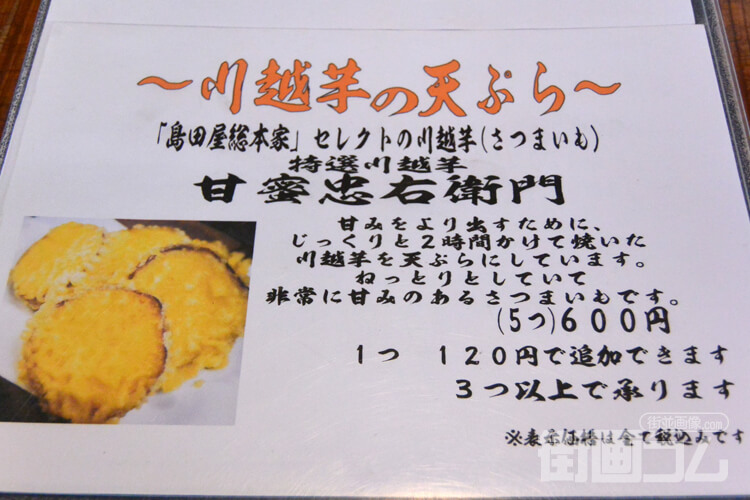 ～川越芋の天ぷら～
「島田屋総本家」セレクトの川越芋(さつまいも)
特選川越芋
甘蜜忠右衛門
甘みをより出すために、
じっくりと２時間かけて焼いた
川越芋を天ぷらにしています。
ねっとりとしていて
非常に甘みのあるさつまいもです。
(5つ)６００円
１つ　１２０円で追加できます
３つ以上で承ります
※表示価格は全て税込みです
街並画像.com
街画コム